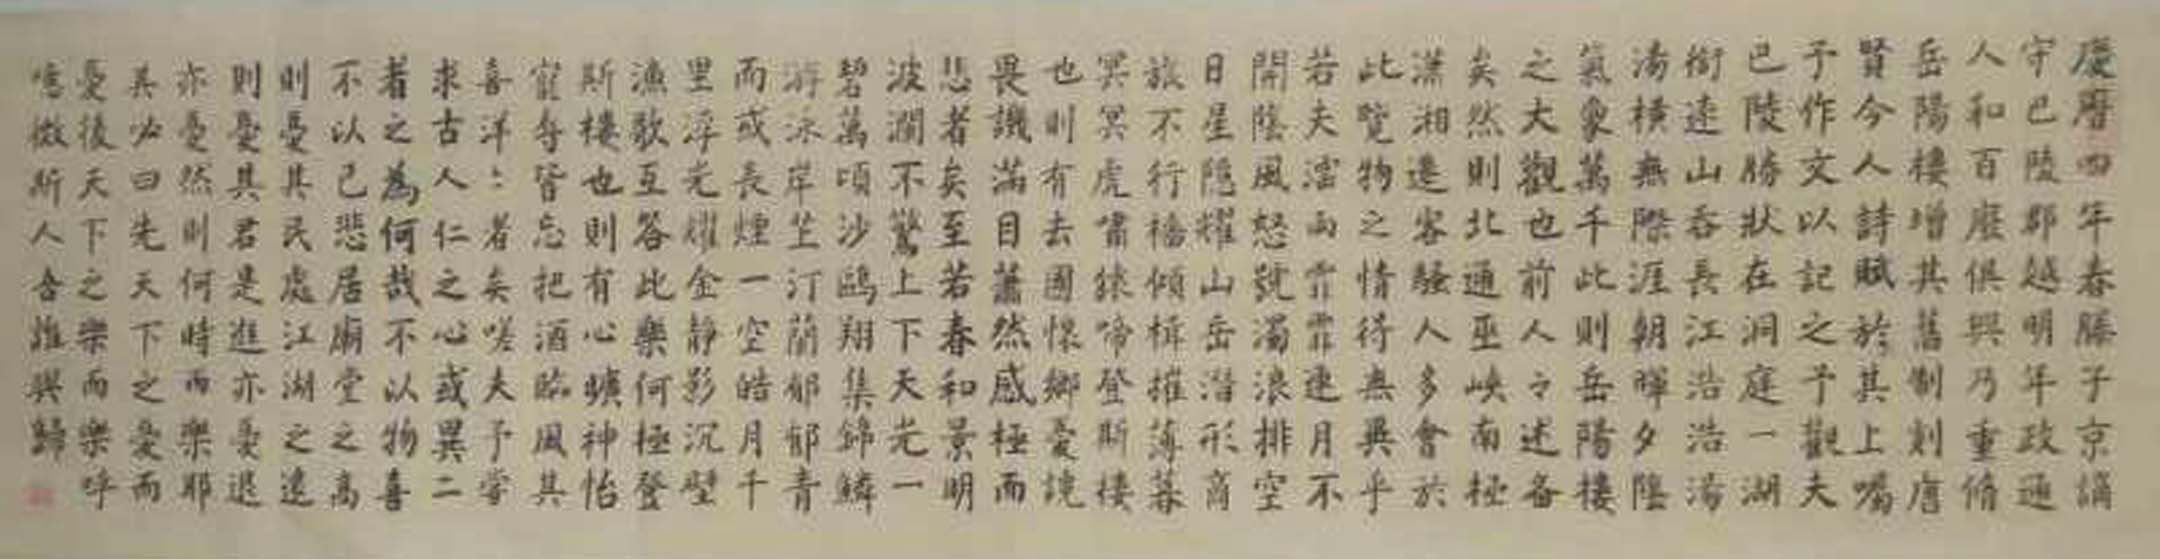 慶曆四年春滕子京謫
守巴陵郡越明年政通
人和百廢俱興乃重修
岳陽樓增其舊制刻唐
賢今人詩賦於其上囑
予作文以記之予觀夫
巴陵勝狀在洞庭一湖
銜遠山吞長江浩浩湯
湯橫無際涯朝暉夕陰
氣象萬千此則岳陽樓
之大觀也前人之述备
矣然則北通巫峽南極
瀟湘遷客騷人多會於
此覽物之情得無異乎
若夫霪雨霏霏連月不
開陰風怒號濁浪排空
日星隱耀山岳潛形商
旅不行檣傾楫摧薄暮
冥冥虎嘯猿啼登斯樓
也則有去國懷鄉憂讒
畏譏滿目蕭然感極而
悲者矣至若春和景明
波瀾不驚上下天光一
碧萬頃沙鷗翔集錦鱗
游泳岸芷汀蘭郁郁青
而或長煙一空皓月千
里浮光耀金靜影沉璧
漁歌互答此樂何極登
斯樓也則有心曠神怡
寵辱皆忘把酒臨風其
喜洋〻者矣嗟夫予嘗
求古人仁之心或異二
者之為何哉不以物喜
不以己悲居廟堂之高
則憂其民處江湖之遠
則憂其君是進亦憂退
亦憂然則何時而樂耶
其必曰先天下之憂而
憂後天下之樂而樂呼
噫微斯人吾誰與歸